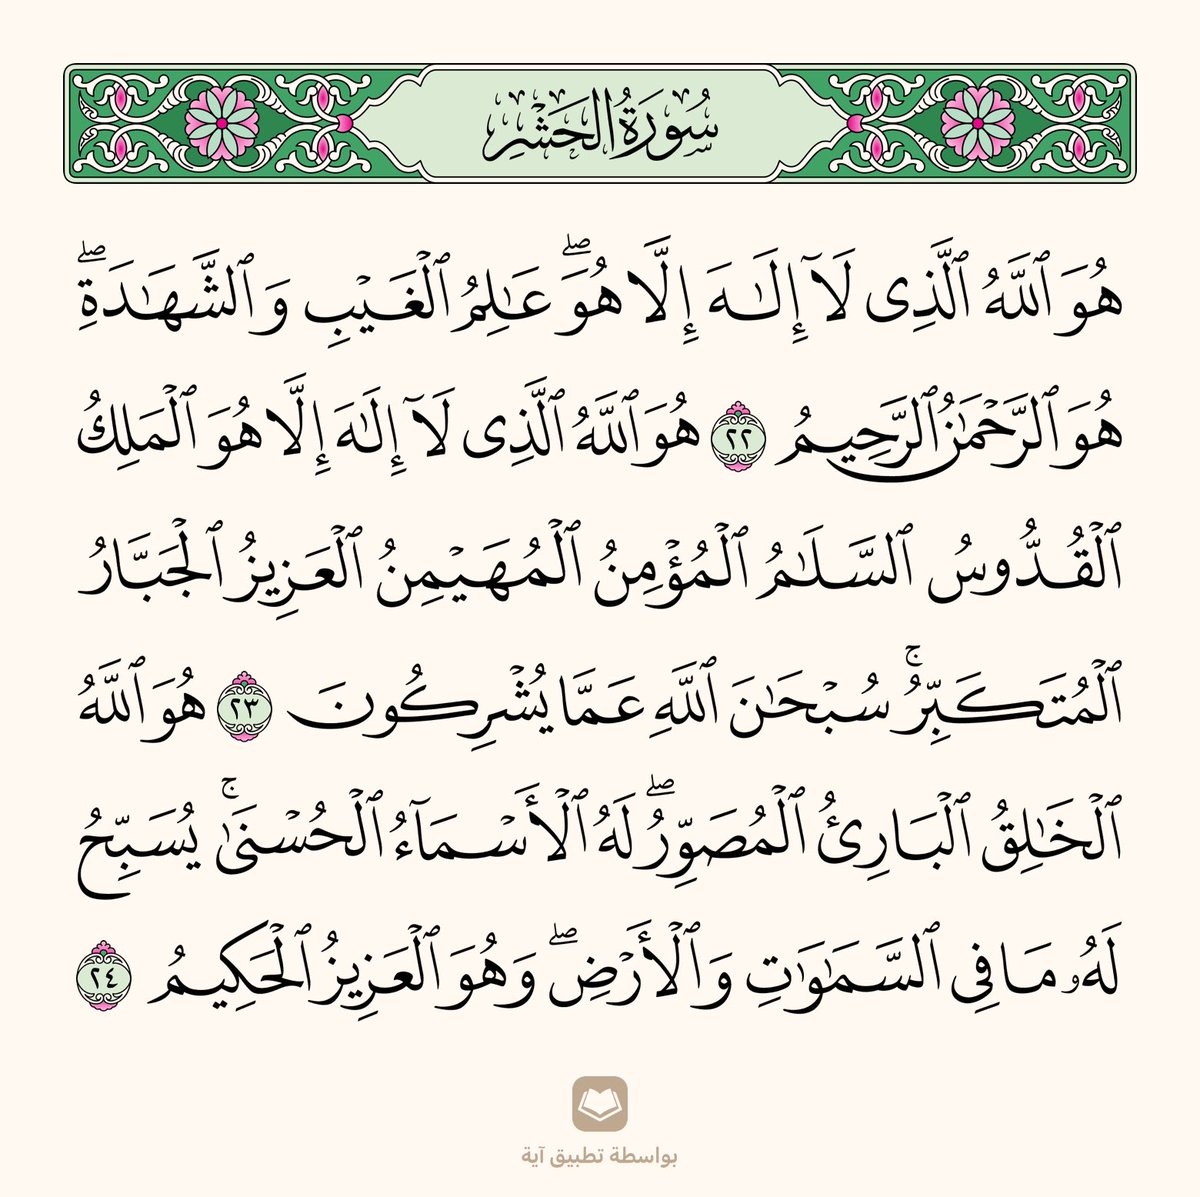 سُورَةُ الحَشْرِ
هُوَ ٱللَّهُ ٱلَّذِى لَآ إِلَـٰهَ إِلَّا هُوَۖ عَـٰلِمُ ٱلْغَيْبِ وَٱلشَّهَـٰدَةِۖ
هُوَ ٱلرَّحْمَـٰنُ ٱلرَّحِيمُ ٢٢ هُوَ ٱللَّهُ ٱلَّذِى لَآ إِلَـٰهَ إِلَّا هُوَ ٱلْمَلِكُ
ٱلْقُدُّوسُ ٱلسَّلَـٰمُ ٱلْمُؤْمِنُ ٱلْمُهَيْمِنُ ٱلْعَزِيزُ ٱلْجَبَّارُ
ٱلْمُتَكَبِّرُۚ سُبْحَـٰنَ ٱللَّهِ عَمَّا يُشْرِكُونَ ٢٣ هُوَ ٱللَّهُ
ٱلْخَـٰلِقُ ٱلْبَارِئُ ٱلْمُصَوِّرُۖ لَهُ ٱلْأَسْمَآءُ ٱلْحُسْنَىٰۚ يُسَبِّحُ
لَهُۥ مَا فِى ٱلسَّمَـٰوَٰتِ وَٱلْأَرْضِۖ وَهُوَ ٱلْعَزِيزُ ٱلْحَكِيمُ ٢٤
بواسطة تطبيق آية